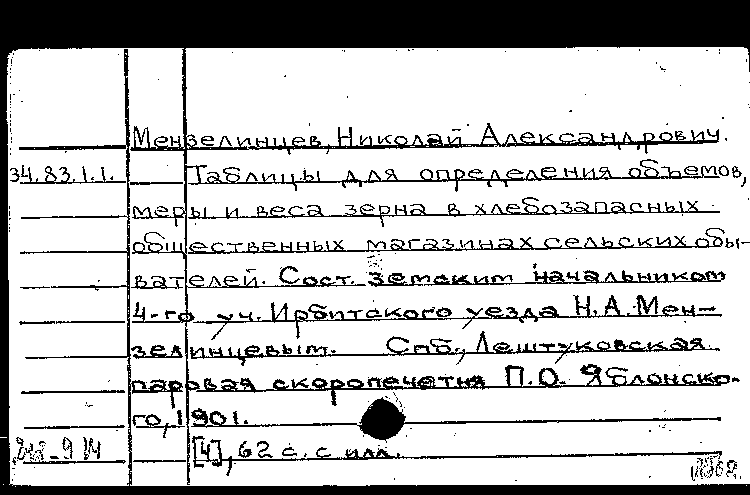 Мензелинцев, Николай Александрович.
34.83.1.1. Таблицы для определения объемов,
меры и веса зерна в хлебозапасных
общественных магазинах сельских обы-
вателей. Сост. земским начальником
4-го уч. Ирбитского уезда Н.А. Мен-
зелинцевым. Спб., Лештуковская
паровая скоропечатня П.О. Яблонско-
го, 1901.
[4], 62 с. с илл.